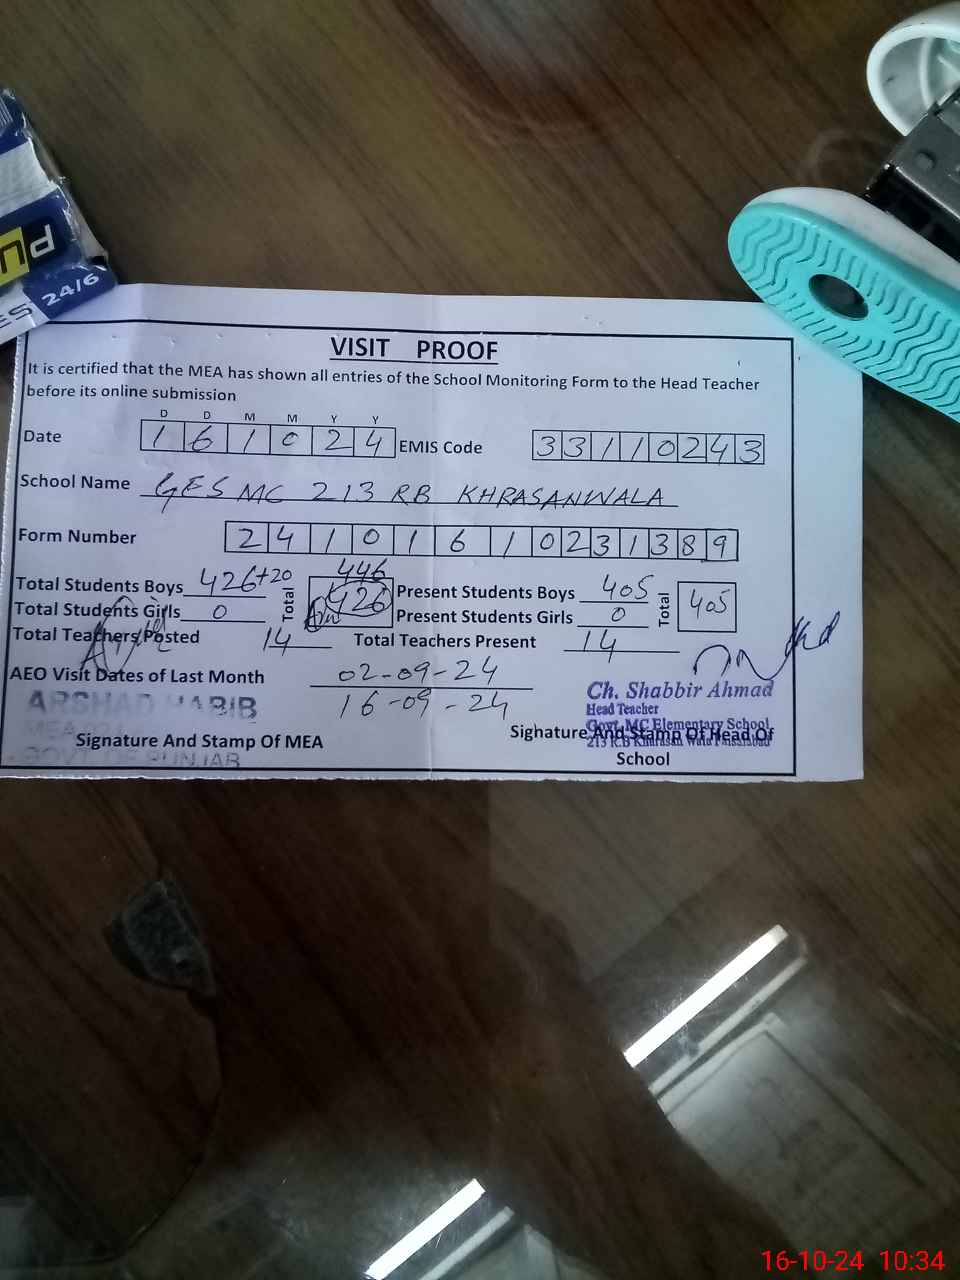 PU
ES 24/6
VISIT PROOF
It is certified that the MEA has shown all entries of the School Monitoring Form to the Head Teacher
before its online submission
D D M M Y Y
Date 1 6 1 0 2 4 EMIS Code 3 3 1 1 0 2 4 3
School Name GES MC 213 RB KHRASANWALA
Form Number 2 4 1 0 1 6 1 0 2 3 1 3 8 9
446
Total Students Boys 426+20 Total 426 Present Students Boys 405 Total 405
Total Students Girls 0 Present Students Girls 0
Total Teachers Posted 14 Total Teachers Present 14
AEO Visit Dates of Last Month 02-09-24
16-09-24
ARSHAD HABIB
Ch. Shabbir Ahmad
Head Teacher
Govt. MC Elementary School
213 R.B Khurasan Wala Faisalabad
GOVT OF PUNJAB
Signature And Stamp Of MEA
Signature And Stamp Of Head Of
School
16-10-24 10:34